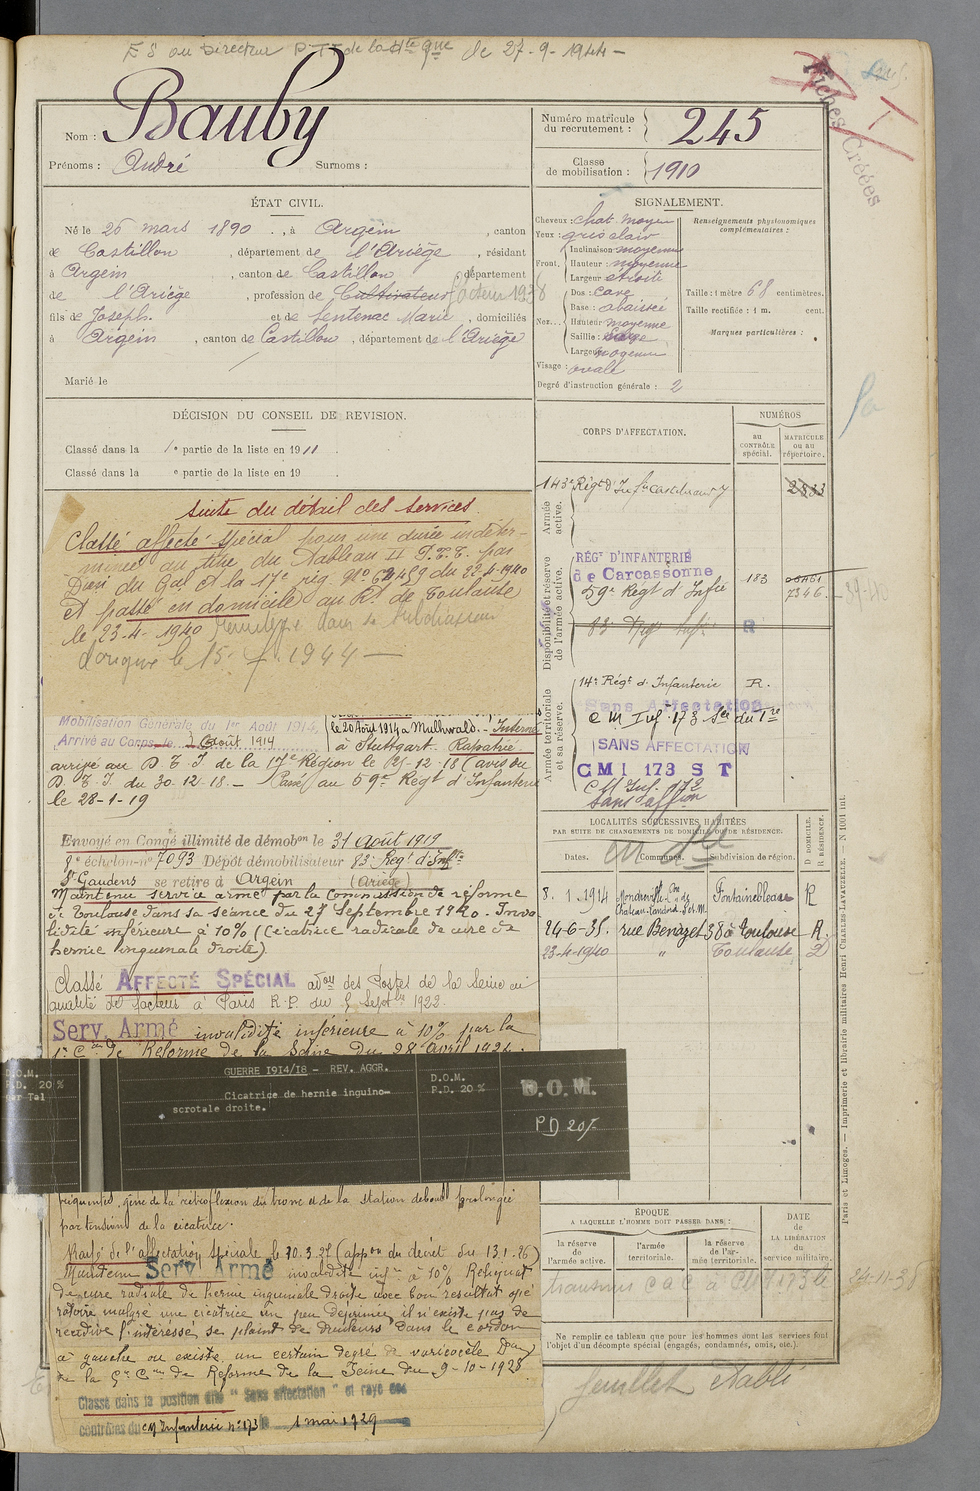 ES au Directeur P.T.T. de la Hte Gne le 27-9-1944-
Fiches Créées
Nom : Bauby
Prénoms : André Surnoms :
Numéro matricule du recrutement : 245
Classe de mobilisation : 1910
ÉTAT CIVIL.
Né le 26 mars 1890 , à Argein , canton
de Castillon , département de l'Ariège , résidant
à Argein , canton de Castillon , département
de l'Ariège , profession de Cultivateur facteur 1938
fils de Joseph et de Sentenac Marie , domiciliés
à Argein , canton de Castillon , département de l'Ariège
Marié le
SIGNALEMENT.
Cheveux : chat. moyen
Yeux : gris clair
Front. Inclinaison moyenne
Hauteur : moyenne
Largeur étroite
Nez... Dos : cave
Base : abaissée
Hauteur moyenne
Saillie :
Largeur moyenne
Visage : ovale
Degré d'instruction générale : 2
Renseignements physionomiques complémentaires :
Taille : 1 mètre 68 centimètres.
Taille rectifiée : 1 m. cent.
Marques particulières :
DÉCISION DU CONSEIL DE REVISION.
Classé dans la 1e partie de la liste en 1911 .
Classé dans la e partie de la liste en 19 .
suite du détail des services.
Classé affecté spécial pour une durée indéter-
minée au titre du Tableau II P.T.T. par
Don du Gal Ct la 17e rég. No 62459 du 22-4-1940
et passé en domicile au Rt de Toulouse
le 23-4-1940 dans sa subdivision
d'origine le 15. 1944 —
Mobilisation Générale du 1er Août 1914.
Arrivé au Corps le 3 Août 1914
le 20 Août 1914 à Mulhwald. - Interné
à Stuttgart. Rapatrié
arrivé au D.T.I de la 17e Région le 25-12-18 (avis du
D.T.I du 30.12.18. - Passé au 59e Régt d'Infanterie
le 28-1-19
Envoyé en Congé illimité de démobon le 31 Août 1919
8e échelon-no 7093 Dépôt démobilisateur 83e Regt d'Inftie
St Gaudens se retire à Argein (Ariège)
Maintenu service armé par la Commission de réforme
de Toulouse dans sa séance du 27 Septembre 1920. Inva
lidité inférieure à 10% (Cicatrice radicale de cure de
hernie inguinale droite).
Classé AFFECTÉ SPÉCIAL adon des Postes de la Seine en
qualité de facteur à Paris R.P. du 5 Septbre 1922.
Serv. Armé invalidité inférieure à 10% par la
1e Con de Réforme de la Seine du 28 Avril 192
D.O.M.
P.D. 20 %
GUERRE 1914/18 - REV. AGGR.
Cicatrice de hernie inguino-
scrotale droite.
D.O.M.
P.D. 20 %
D.O.M.
PD 20%
fréquentes, gêne de la rétroflexion du tronc et de la station debout prolongée
par tension de la cicatrice.
Rayé de l'affectation spéciale le 10.3.27 (appon du décret du 13.1.26)
Maintenu Serv Armé invalidité infre à 10% Reliquat
de cure radicale de hernie inguinale droite avec bon résultat opé
ratoire malgré une cicatrice un peu déprimée, il n'existe pas de
récidive l'intéressé se plaint de douleurs dans le cordon
à gauche où existe un certain degré de varicocèle Don
de la 5e Con de Réforme de la Seine du 9-10-1928
Classé dans la position dite "Sans affectation" et rayé des
contrôles du CM Infanterie no 173 le 1 mai 1929
CORPS D'AFFECTATION.
NUMÉROS
au CONTRÔLE spécial.
MATRICULE ou au répertoire.
Armée active.
143e Régt d'Infie Castelnaudary 2833
Disponibilité et réserve de l'armée active.
RÉGt D'INFANTERIE
de Carcassonne
59e Régt d'Infie 183 7346 39-40
83e Regt Infie R
Armée territoriale et sa réserve.
14e Régt d'Infanterie R.
Sans Affectation
C M Inf. 173
SANS AFFECTATION
CMI 173 ST
C M Inf. 173
Sans affon
LOCALITÉS SUCCESSIVES HABITÉES
PAR SUITE DE CHANGEMENTS DE DOMICILE OU DE RÉSIDENCE.
Dates. Communes. Subdivision de région. D DOMICILE. R RÉSIDENCE.
8.1.1914 Fontainebleau R
24-6-35. rue Benazet 38 à Toulouse R.
23-4-1940 " Toulouse D
ÉPOQUE
A LAQUELLE L'HOMME DOIT PASSER DANS :
la réserve de l'armée active.
l'armée territoriale.
la réserve de l'armée territoriale.
DATE de LA LIBÉRATION du service militaire.
transmis C a C à CM I 173 le 24-11-38
Ne remplir ce tableau que pour les hommes dont les services font
l'objet d'un décompte spécial (engagés, condamnés, omis, etc.).
feuillet établi
Paris et Limoges. — Imprimerie et librairie militaires Henri CHARLES-LAVAUZELLE. — N 1001 int.